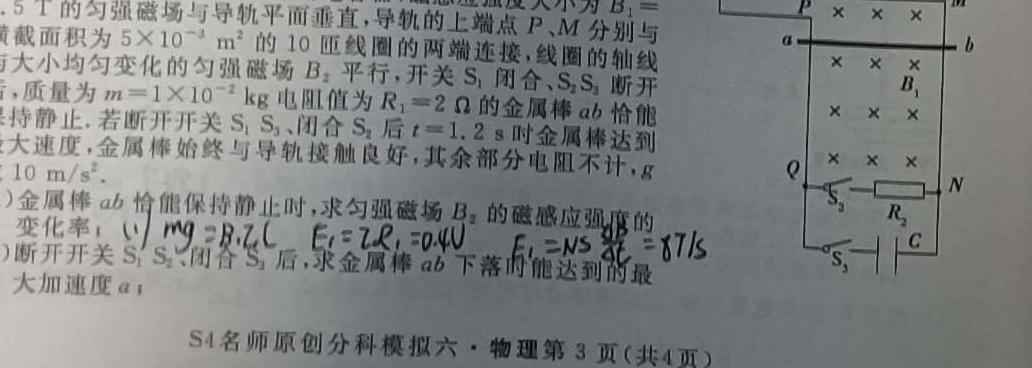 .5 T 的匀强磁场与导轨平面垂直,导轨的上端点 P、M 分别与
横截面积为 5×10⁻³ m² 的 10 匝线圈的两端连接,线圈的轴线
与大小均匀变化的匀强磁场 B₂ 平行,开关 S₁ 闭合、S₂S₃ 断开
后,质量为 m=1×10⁻² kg 电阻值为 R₁=2 Ω 的金属棒 ab 恰能
保持静止.若断开开关 S₁ S₃、闭合 S₂ 后 t=1.2 s 时金属棒达到
最大速度,金属棒始终与导轨接触良好,其余部分电阻不计,g
取 10 m/s².
)金属棒 ab 恰能保持静止时,求匀强磁场 B₂ 的磁感应强度的
变化率; (1) mg=B₁IL E₁=IR₁=0.4V E₁=NS ΔB/Δt =8T/s
)断开开关 S₁ S₂、闭合 S₃ 后,求金属棒 ab 下落时能达到的最
大加速度 a;
S4名师原创分科模拟六·物理第 3 页(共4页)
P
M
a
b
B₁
Q
N
S₂
R₂
C
S₃